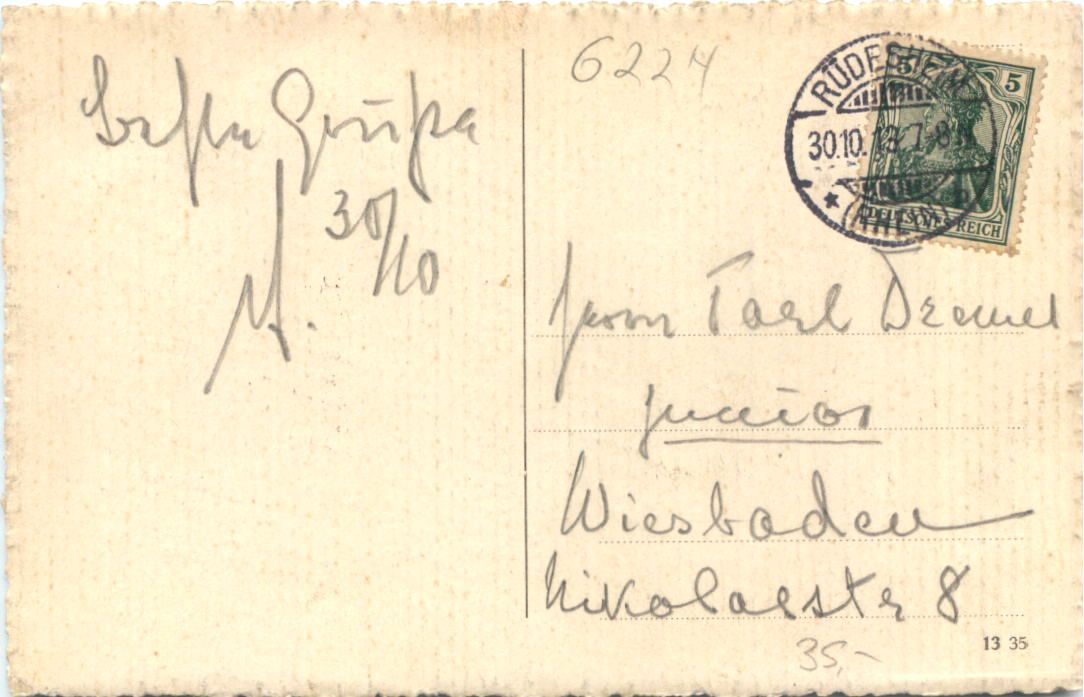 Beste Grüße
30/10
6224
RÜDESHEIM
30.10.13. 7-8
5 5
DEUTSCHES REICH
Herrn Carl Dremel
junior
Wiesbaden
Nikolasstr 8
35,-
13 35